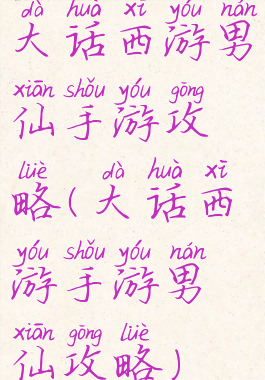 dà huà xī yóu nán
大话西游男
xiān shǒu yóu gōng
仙手游攻
lüè dà huà xī
略(大话西
yóu shǒu yóu nán
游手游男
xiān gōng lüè
仙攻略)